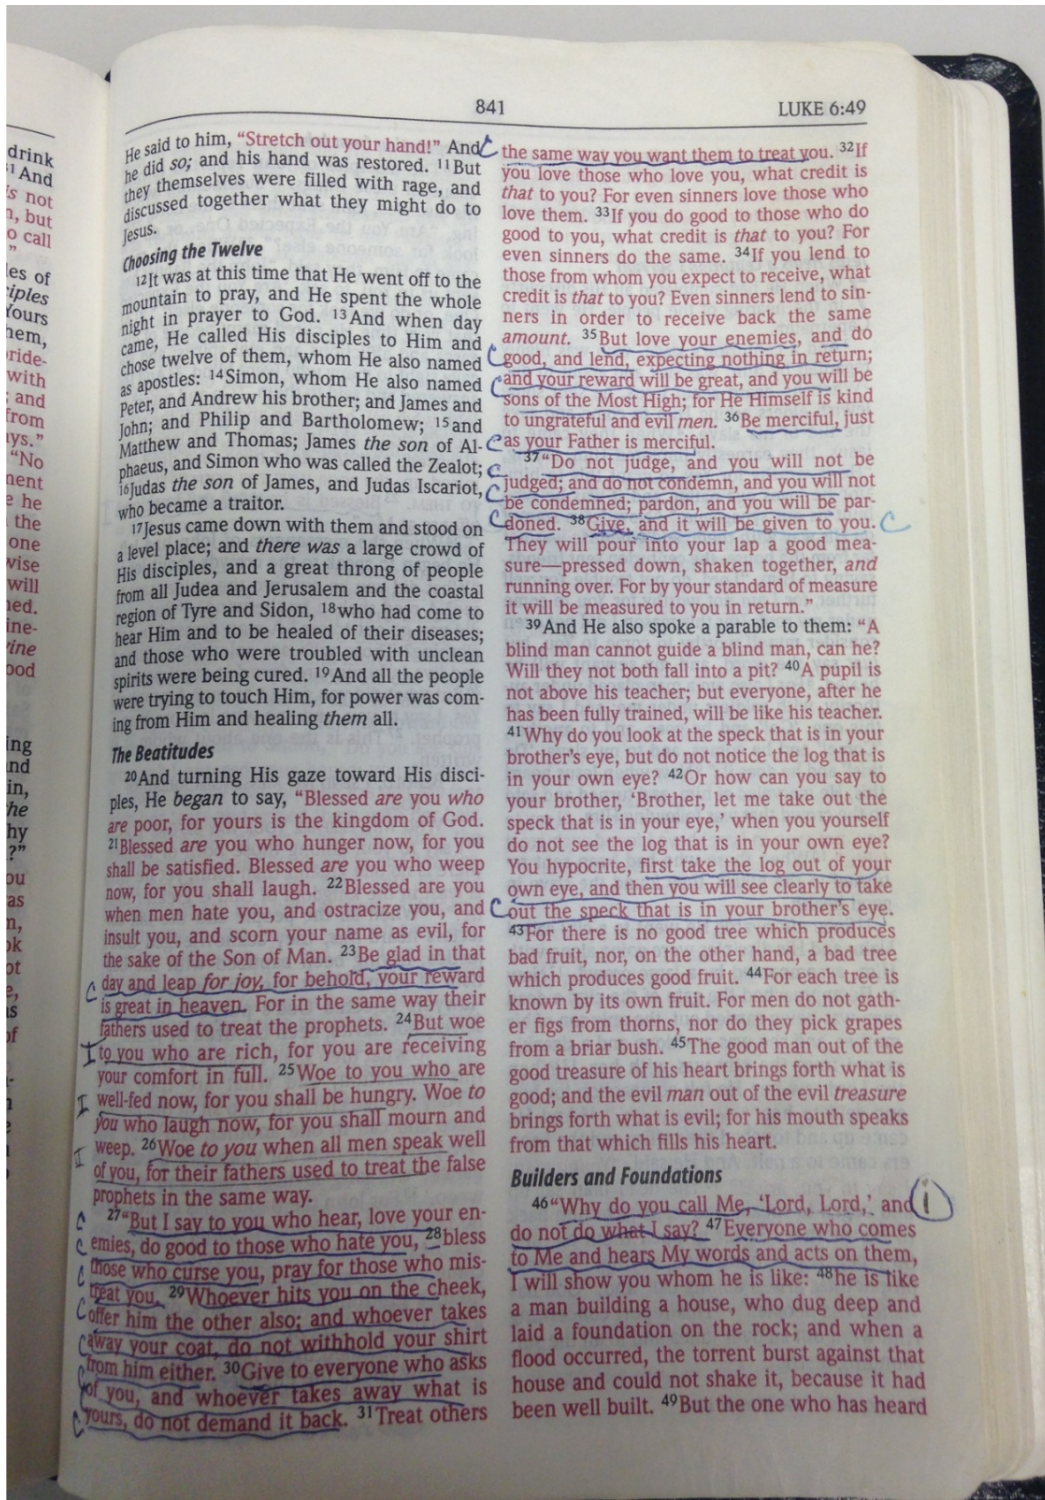 841
LUKE 6:49
drink
31 And
is not
n, but
o call
”
les of
ciples
Yours
hem,
pride-
with
; and
from
ays.”
“No
ment
e he
the
one
wise
will
ned.
ine-
vine
ood
ing
and
in,
the
hy
?”
ou
as
n,
ok
ot
e,
is
of
He said to him, “Stretch out your hand!” And
he did so; and his hand was restored. 11But
they themselves were filled with rage, and
discussed together what they might do to
Jesus.
Choosing the Twelve
12It was at this time that He went off to the
mountain to pray, and He spent the whole
night in prayer to God. 13And when day
came, He called His disciples to Him and
chose twelve of them, whom He also named
as apostles: 14Simon, whom He also named
Peter, and Andrew his brother; and James and
John; and Philip and Bartholomew; 15and
Matthew and Thomas; James the son of Al-
phaeus, and Simon who was called the Zealot;
16Judas the son of James, and Judas Iscariot,
who became a traitor.
17Jesus came down with them and stood on
a level place; and there was a large crowd of
His disciples, and a great throng of people
from all Judea and Jerusalem and the coastal
region of Tyre and Sidon, 18who had come to
hear Him and to be healed of their diseases;
and those who were troubled with unclean
spirits were being cured. 19And all the people
were trying to touch Him, for power was com-
ing from Him and healing them all.
The Beatitudes
20And turning His gaze toward His disci-
ples, He began to say, “Blessed are you who
are poor, for yours is the kingdom of God.
21Blessed are you who hunger now, for you
shall be satisfied. Blessed are you who weep
now, for you shall laugh. 22Blessed are you
when men hate you, and ostracize you, and
insult you, and scorn your name as evil, for
the sake of the Son of Man. 23Be glad in that
C day and leap for joy, for behold, your reward
is great in heaven. For in the same way their
fathers used to treat the prophets. 24But woe
I to you who are rich, for you are receiving
your comfort in full. 25Woe to you who are
I well-fed now, for you shall be hungry. Woe to
you who laugh now, for you shall mourn and
I weep. 26Woe to you when all men speak well
of you, for their fathers used to treat the false
prophets in the same way.
C 27“But I say to you who hear, love your en-
C emies, do good to those who hate you, 28bless
C those who curse you, pray for those who mis-
treat you. 29Whoever hits you on the cheek,
C offer him the other also; and whoever takes
C away your coat, do not withhold your shirt
C from him either. 30Give to everyone who asks
C of you, and whoever takes away what is
C yours, do not demand it back. 31Treat others
C the same way you want them to treat you. 32If
you love those who love you, what credit is
that to you? For even sinners love those who
love them. 33If you do good to those who do
good to you, what credit is that to you? For
even sinners do the same. 34If you lend to
those from whom you expect to receive, what
credit is that to you? Even sinners lend to sin-
ners in order to receive back the same
amount. 35But love your enemies, and do
C good, and lend, expecting nothing in return;
C and your reward will be great, and you will be
sons of the Most High; for He Himself is kind
to ungrateful and evil men. 36Be merciful, just
C as your Father is merciful.
C 37“Do not judge, and you will not be
C judged; and do not condemn, and you will not
be condemned; pardon, and you will be par-
C doned. 38Give, and it will be given to you. C
They will pour into your lap a good mea-
sure—pressed down, shaken together, and
running over. For by your standard of measure
it will be measured to you in return.”
39And He also spoke a parable to them: “A
blind man cannot guide a blind man, can he?
Will they not both fall into a pit? 40A pupil is
not above his teacher; but everyone, after he
has been fully trained, will be like his teacher.
41Why do you look at the speck that is in your
brother’s eye, but do not notice the log that is
in your own eye? 42Or how can you say to
your brother, ‘Brother, let me take out the
speck that is in your eye,’ when you yourself
do not see the log that is in your own eye?
You hypocrite, first take the log out of your
own eye, and then you will see clearly to take
C out the speck that is in your brother’s eye.
43For there is no good tree which produces
bad fruit, nor, on the other hand, a bad tree
which produces good fruit. 44For each tree is
known by its own fruit. For men do not gath-
er figs from thorns, nor do they pick grapes
from a briar bush. 45The good man out of the
good treasure of his heart brings forth what is
good; and the evil man out of the evil treasure
brings forth what is evil; for his mouth speaks
from that which fills his heart.
Builders and Foundations
46“Why do you call Me, ‘Lord, Lord,’ and i
do not do what I say? 47Everyone who comes
to Me and hears My words and acts on them,
I will show you whom he is like: 48he is like
a man building a house, who dug deep and
laid a foundation on the rock; and when a
flood occurred, the torrent burst against that
house and could not shake it, because it had
been well built. 49But the one who has heard